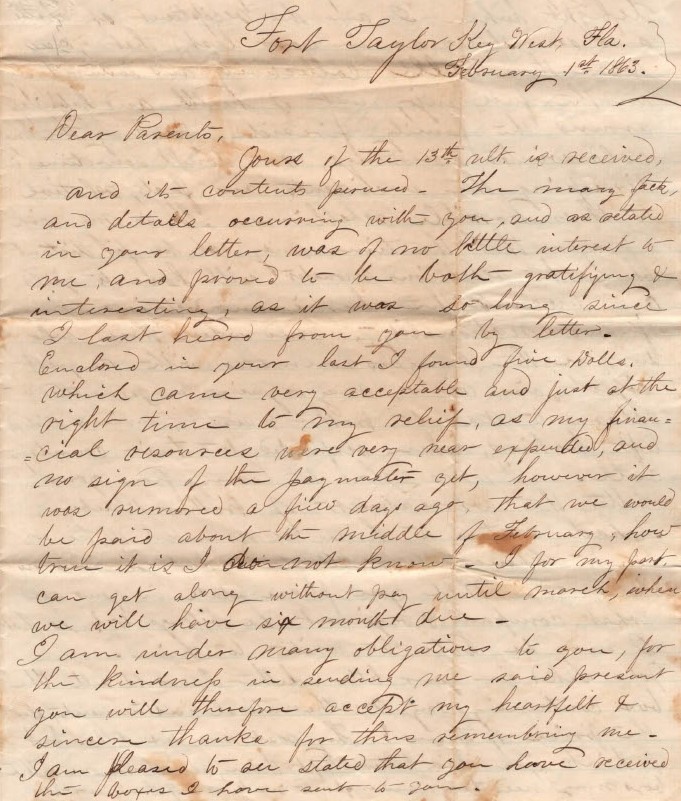 Fort Taylor Key West Fla.
February 1st 1863.
Dear Parents,
Yours of the 13th ult. is received,
and its contents perused - The many facts,
and details occurring with you, and as stated
in your letter, was of no little interest to
me, and proved to be both gratifying &
interesting, as it was so long since
I last heard from you by letter -
Enclosed in your last I found five Dolls.
which came very acceptable and just at the
right time to my relief, as my finan=
=cial resources were very near expended, and
no sign of the paymaster yet, however it
was rumored a few days ago that we would
be paid about the middle of February, how
true it is I do not know - I for my part,
can get along without pay until march, when
we will have six month due -
I am under many obligations to you, for
the kindness in sending me said present
you will therefore accept my heartfelt &
sincere thanks for thus remembring me -
I am pleased to see stated that you have received
the boxes I have sent to you.